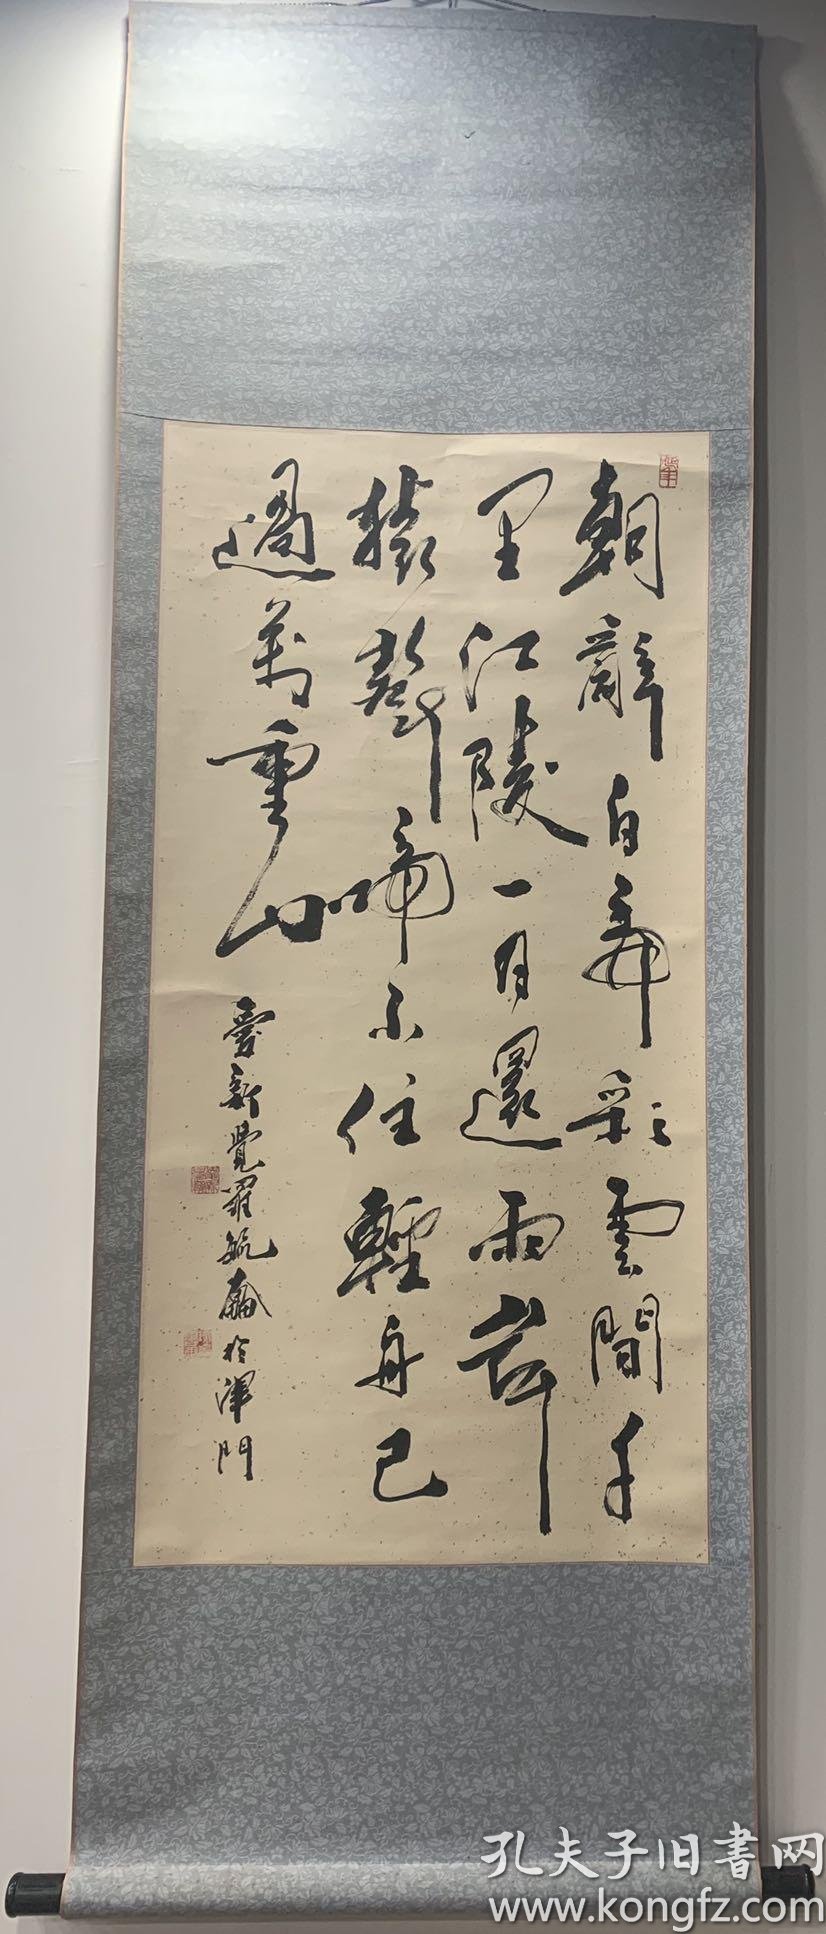 朝辭白帝彩雲間千
里江陵一日還兩岸
猿聲啼不住輕舟已
過萬重山
愛新覺羅毓嶦於津門
孔夫子旧書网
www.kongfz.com